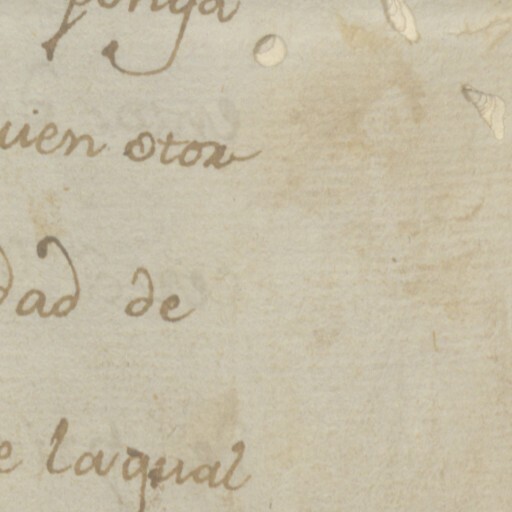 ponga
uien otor
dad de
e laqual